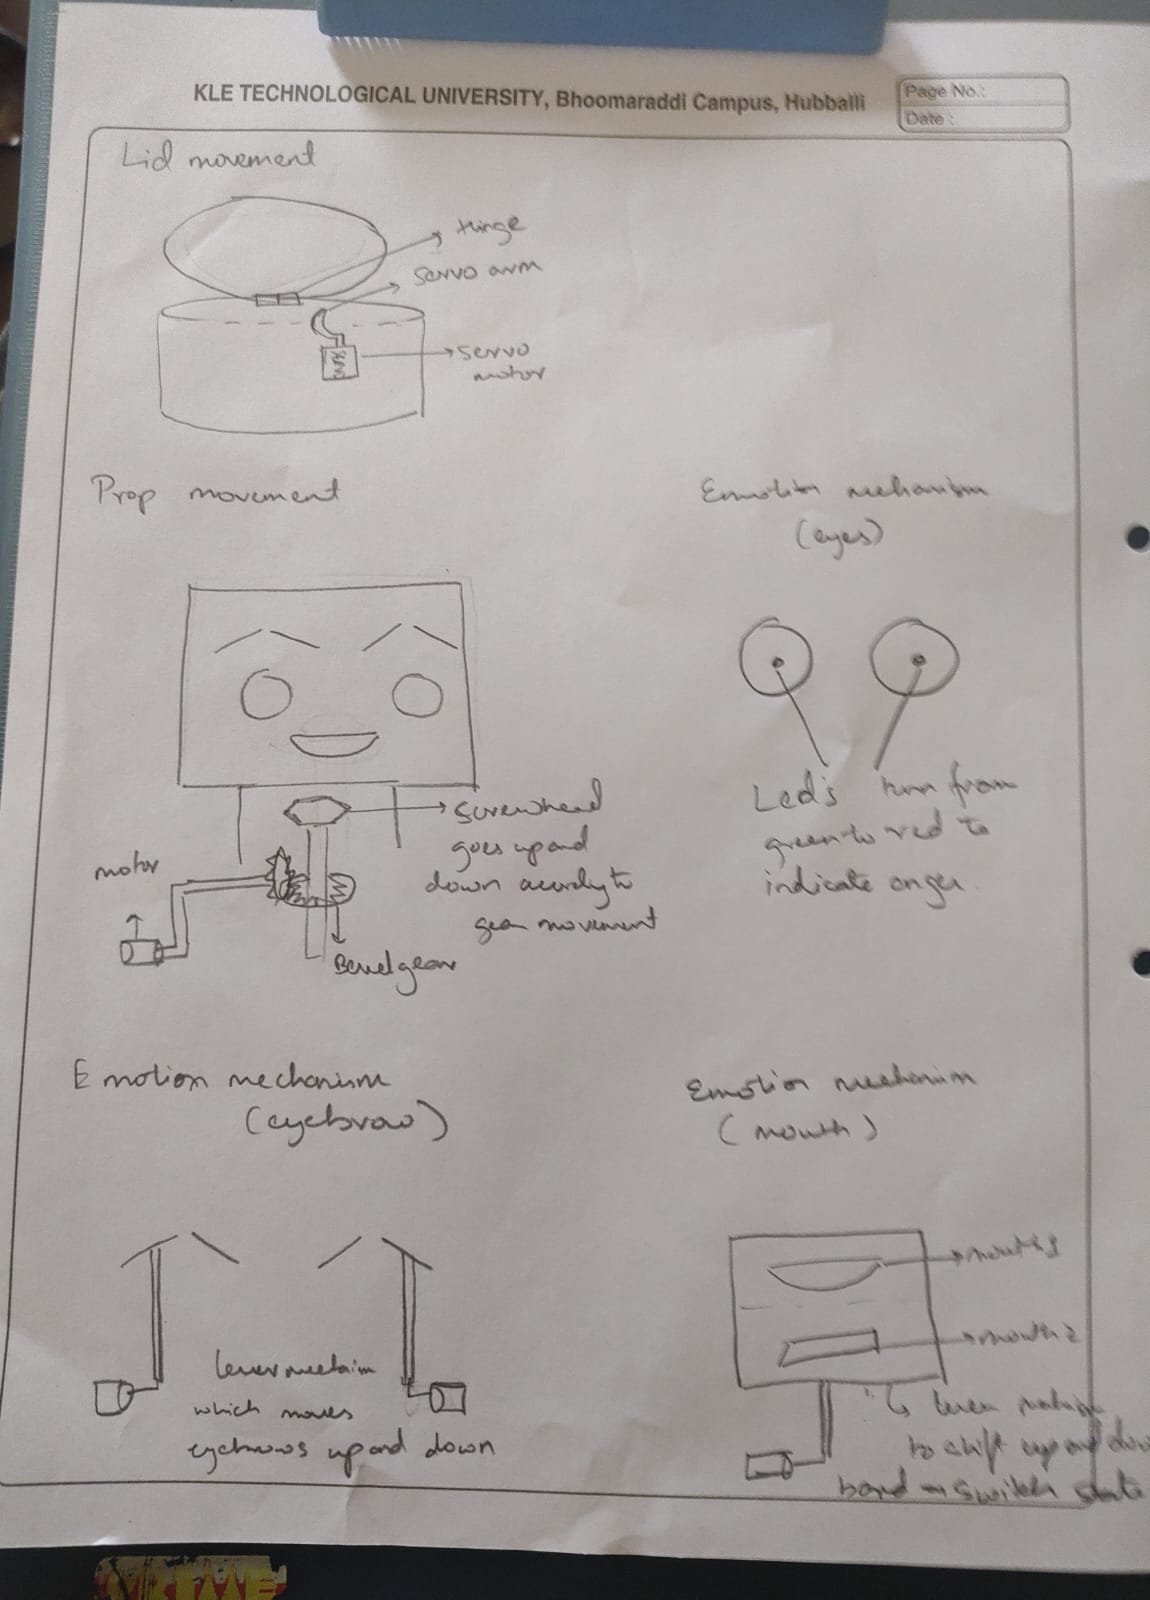 KLE TECHNOLOGICAL UNIVERSITY, Bhoomaraddi Campus, Hubballi
Page No.:
Date :
Lid movement
Hinge
servo arm
servo
motor
Prop movement
Emotion mechanism
(eyes)
screwhead
goes up and
down acordly to
gear movement
motor
Bevel gear
Led's turn from
green to red to
indicate anger.
Emotion mechanism
(eyebrow)
lever
which moves
eyebrows up and down
Emotion mechanism
(mouth)
mouth 1
mouth 2
lever
to shift up and
on switch state